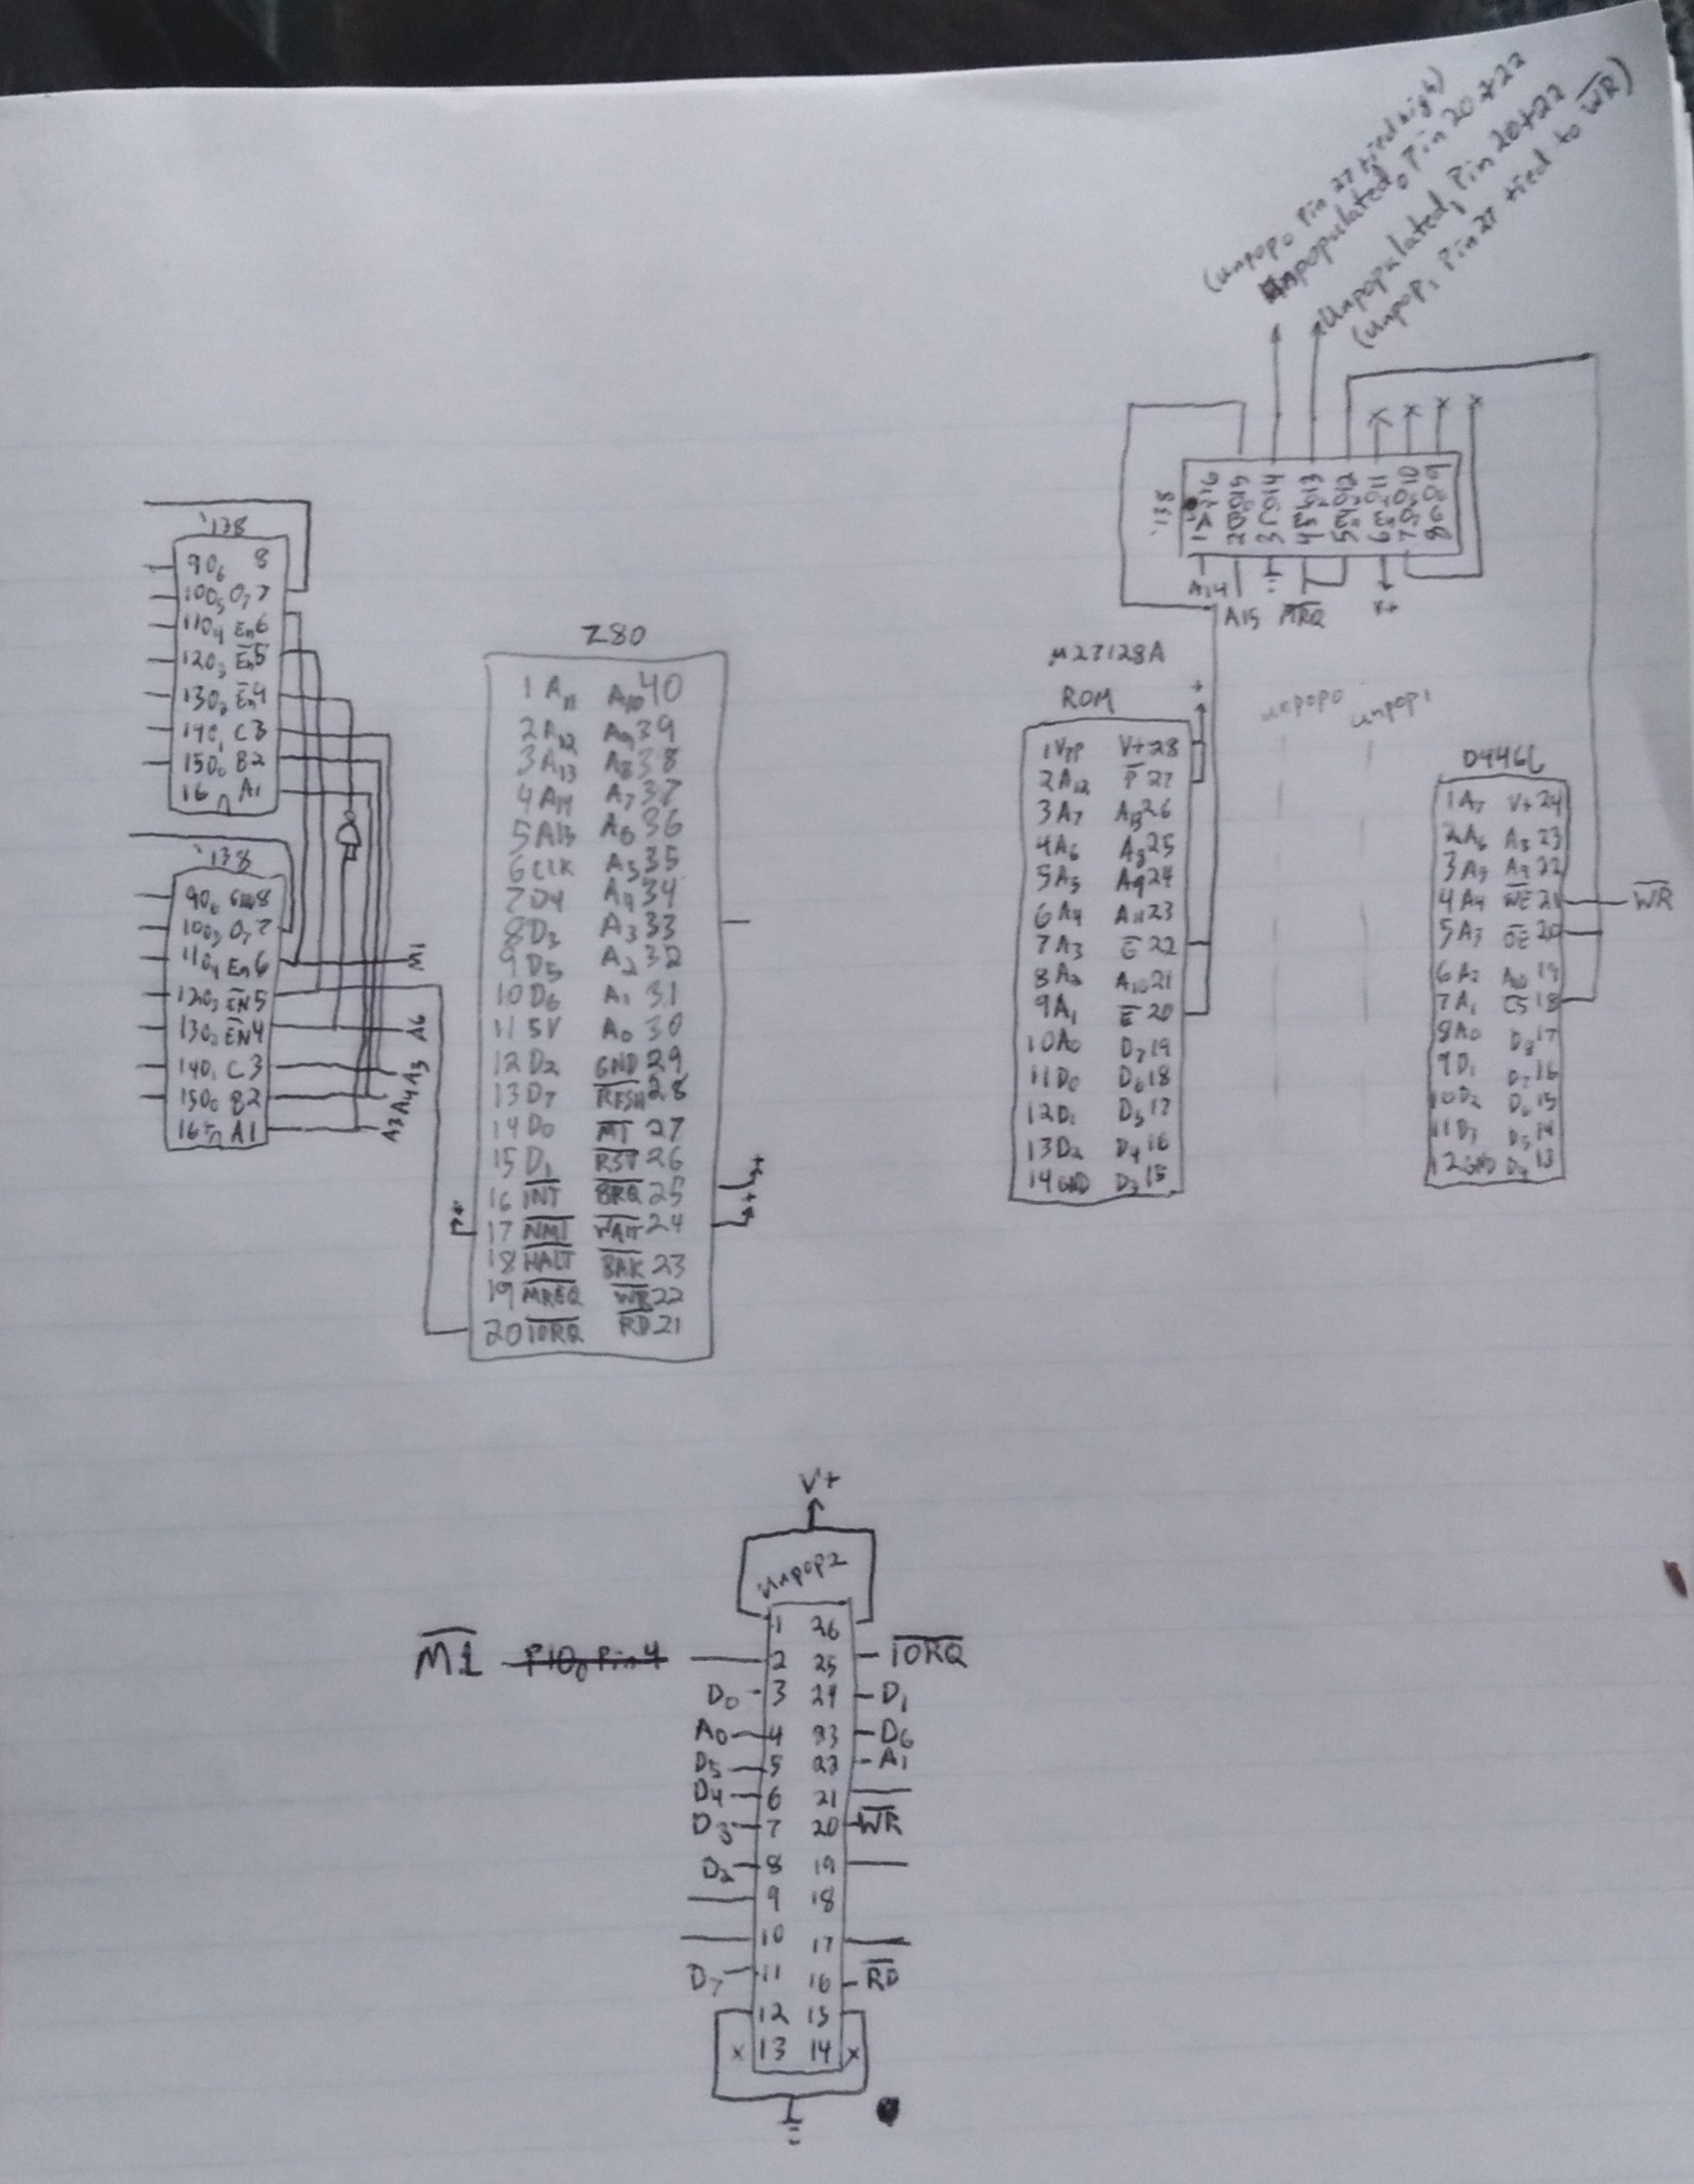 (unpop0 Pin 27 tied high)
unpopulated0 Pin 20+22
unpopulated1 Pin 20+22
(unpop1 Pin 27 tied to WR)
'138
1 A 16
2 B O0 15
3 C O1 14
4 En O2 13
5 En O3 12
6 En O4 11
7 O7 O5 10
8 O6 9
A14
A15
MRQ
V+
'138
9 O6 8
10 O5 O7 7
11 O4 En 6
12 O3 En 5
13 O2 En 4
14 O1 C 3
15 O0 B 2
16 A 1
'138
9 O6 GND 8
10 O5 O7 7
11 O4 En 6
12 O3 EN 5
13 O2 EN 4
14 O1 C 3
15 O0 B 2
16 A 1
M1
A6
A5
A4
A3
Z80
1 A11 A10 40
2 A12 A9 39
3 A13 A8 38
4 A14 A7 37
5 A15 A6 36
6 CLK A5 35
7 D4 A4 34
8 D3 A3 33
9 D5 A2 32
10 D6 A1 31
11 5V A0 30
12 D2 GND 29
13 D7 RFSH 28
14 D0 M1 27
15 D1 RST 26
16 INT BRQ 25
17 NMI WAIT 24
18 HALT BAK 23
19 MREQ WR 22
20 IORQ RD 21
M27128A
ROM
+
1 VPP V+ 28
2 A12 P 27
3 A7 A13 26
4 A6 A8 25
5 A5 A9 24
6 A4 A11 23
7 A3 G 22
8 A2 A10 21
9 A1 E 20
10 A0 D7 19
11 D0 D6 18
12 D1 D5 17
13 D2 D4 16
14 GND D3 15
unpop0
unpop1
D446C
1 A7 V+ 24
2 A6 A8 23
3 A5 A9 22
4 A4 WE 21 WR
5 A3 OE 20
6 A2 A10 19
7 A1 CS 18
8 A0 D8 17
9 D1 D7 16
10 D2 D6 15
11 D3 D5 14
12 GND D4 13
V+
unpop2
1 26
M1 PIO0 Pin 4 2 25 IORQ
D0 3 24 D1
A0 4 23 D6
D5 5 22 A1
D4 6 21
D3 7 20 WR
D2 8 19
9 18
10 17
D7 11 16 RD
12 15
x 13 14 x